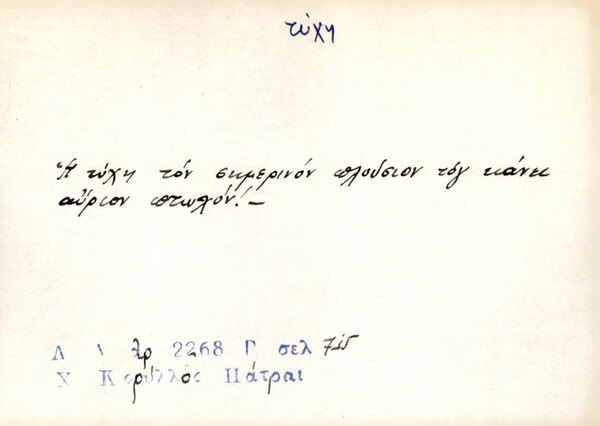 τύχη
Ἡ τύχη τόν σημερινόν πλούσιον τόν κάνει
αὔριον πτωχόν! –
Λ Α ἀρ 2268 Γ σελ 715
Χ Κορύλλος Πάτραι